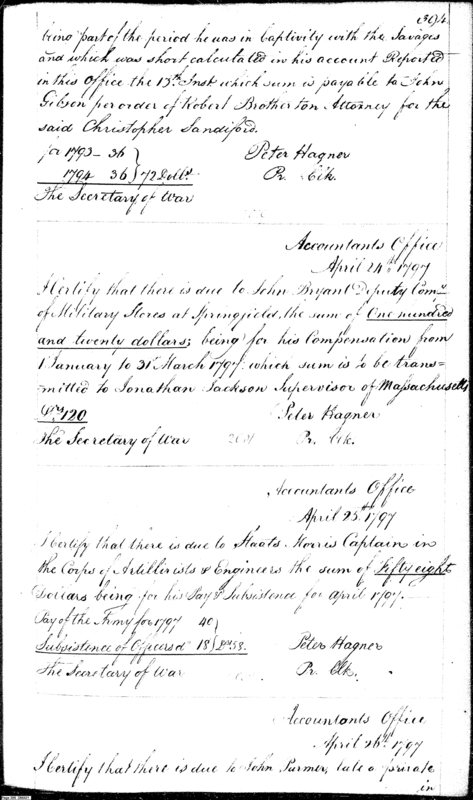 394
being part of the period he was in Captivity with the Savages
and which was short calculated in his account Reported
in this Office the 13th Inst which sum is payable to John
Gibson per order of Robert Brotherton Attorney for the
said Christopher Sandiford.
for 1793 - 36
1794 36 } 72 Dolls
Peter Hagner
Pr. Clk.
The Secretary of War
Accountants Office
April 24th 1797
I Certify that there is due to John Bryant Deputy Comy
of Military Stores at Springfield, the sum of One hundred
and twenty dollars; being for his Compensation from
1 January to 31st March 1797. which sum is to be trans=
=mitted to Jonathan Jackson Supervisor of Massachusetts
Drs 120
Peter Hagner
The Secretary of War
Pr. Clk.
Accountants Office
April 25th 1797
I Certify that there is due to Staats Morris Captain in
the Corps of Artillirists & Engineers the sum of fifty eight
Dollars being for his Pay & Subsistence for April 1797. —
Pay of the Army for 1797 40
Subsistence of Officers do 18 } Drs 58.
Peter Hagner
The Secretary of War
Pr. Clk.
Accountants Office
April 26th 1797
I Certify that there is due to John Purmer, late a private
in